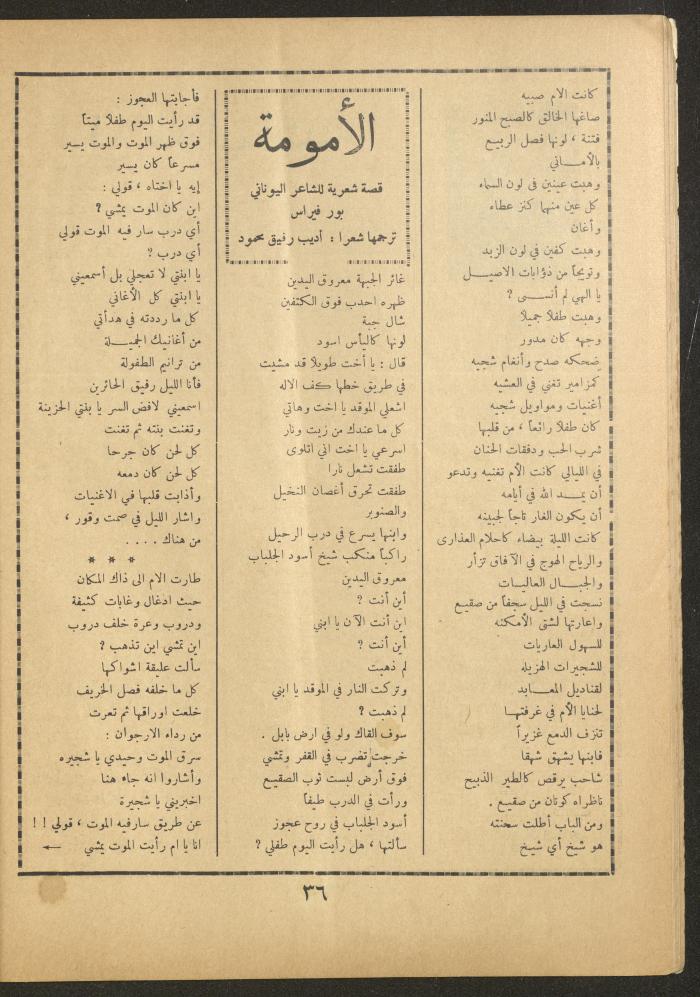 الأمومة
قصة شعرية للشاعر اليوناني
بور فيراس
ترجمها شعرا : أديب رفيق محمود
كانت الام صبيه
صاغها الخالق كالصبح المنور
فتنة ، لونها فصل الربيع
بالأماني
وهبت عينين في لون السماء
كل عين منهما كنز عطاء
وأغان
وهبت كفين في لون الزبد
وتويجاً من ذؤابات الاصيل
يا الهي لم أنسى ؟
وهبت طفلاً جميلا
وجهه كان مدور
ضحكه صدح وأنغام شجيه
كمزامير تغني في العشيه
أغنيات ومواويل شجيه
كان طفلاً رائعاً ، من قلبها
شرب الحب ودفقات الحنان
في الليالي كانت الأم تغنيه وتدعو
أن يمد الله في أيامه
أن يكون الغار تاجاً لجبينه
كانت الليلة بيضاء كاحلام العذارى
والرياح الهوج في الآفاق تزأر
والجبال العاليات
نسجت في الليل سجفاً من صقيع
واعارتها لشتى الأمكنه
للسهول العاريات
للشجيرات الهزيله
لقناديل المعابد
لحنايا الأم في غرفتها
تنزف الدمع غزيراً
فابنها يشهق شهقا
شاحب يرقص كالطير الذبيح
ناظراه كوتان من صقيع .
ومن الباب أطلت سحنته
هو شيخ أي شيخ
غائر الجبهة معروق اليدين
ظهره احدب فوق الكتفين
شال جبة
لونها كاليأس اسود
قال : يا أخت طويلاً قد مشيت
في طريق خطها كف الاله
اشعلي الموقد يا اخت وهاتي
كل ما عندك من زيت ونار
اسرعي يا اخت اني اتلوى
طفقت تشعل نارا
طفقت تحرق أغصان النخيل
والصنوبر
وابنها يسرع في درب الرحيل
راكباً منكب شيخ أسود الجلباب
معروق اليدين
أين أنت ؟
اين أنت الآن يا ابني
أين أنت ؟
لم ذهبت
وتركت النار في الموقد يا ابني
لم ذهبت ؟
سوف القاك ولو في ارض بابل .
خرجت تضرب في القفر وتمشي
فوق أرض لبست ثوب الصقيع
ورأت في الدرب طيفاً
أسود الجلباب في روح عجوز
سألتها ، هل رأيت اليوم طفلي ؟
فأجابتها العجوز :
قد رأيت اليوم طفلا ميتاً
فوق ظهر الموت والموت يسير
مسرعاً كان يسير
إيه يا اختاه ، قولي :
اين كان الموت يمشي ؟
أي درب سار فيه الموت قولي
أي درب ؟
يا ابنتي لا تعجلي بل أسمعيني
يا ابنتي كل الأغاني
كل ما رددته في هدأتي
من أغانيك الجميلة
من ترانيم الطفولة
فأنا الليل رفيق الحائرين
اسمعيني لافض السر يا بنتي الحزينة
وتغنت بنته ثم تغنت
كل لحن كان جرحا
كل لحن كان دمعه
وأذابت قلبها في الاغنيات
واشار الليل في صمت وقور ،
من هناك . . . .
* * *
طارت الام الى ذاك المكان
حيث ادغال وغابات كثيفة
ودروب وعرة خلف دروب
اين تمشي اين تذهب ؟
سألت عليقة اشواكها
كل ما خلفه فصل الخريف
خلعت اوراقها ثم تعرت
من رداء الارجوان :
سرق الموت وحيدي يا شجيره
وأشاروا انه جاء هنا
اخبريني يا شجيرة
عن طريق سارفيه الموت ، قولي ! !
انا يا ام رأيت الموت يمشي ←
٣٦